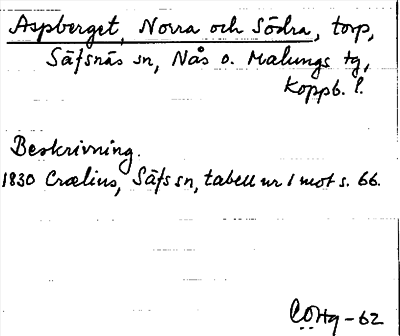 Aspberget, Norra och Södra, torp,
Säfsnäs sn, Nås o. Malungs tg,
Koppb. l.
Beskrivning.
1830 Crælius, Säfs sn, tabell nr 1 mot s. 66.
CÖHg - 62